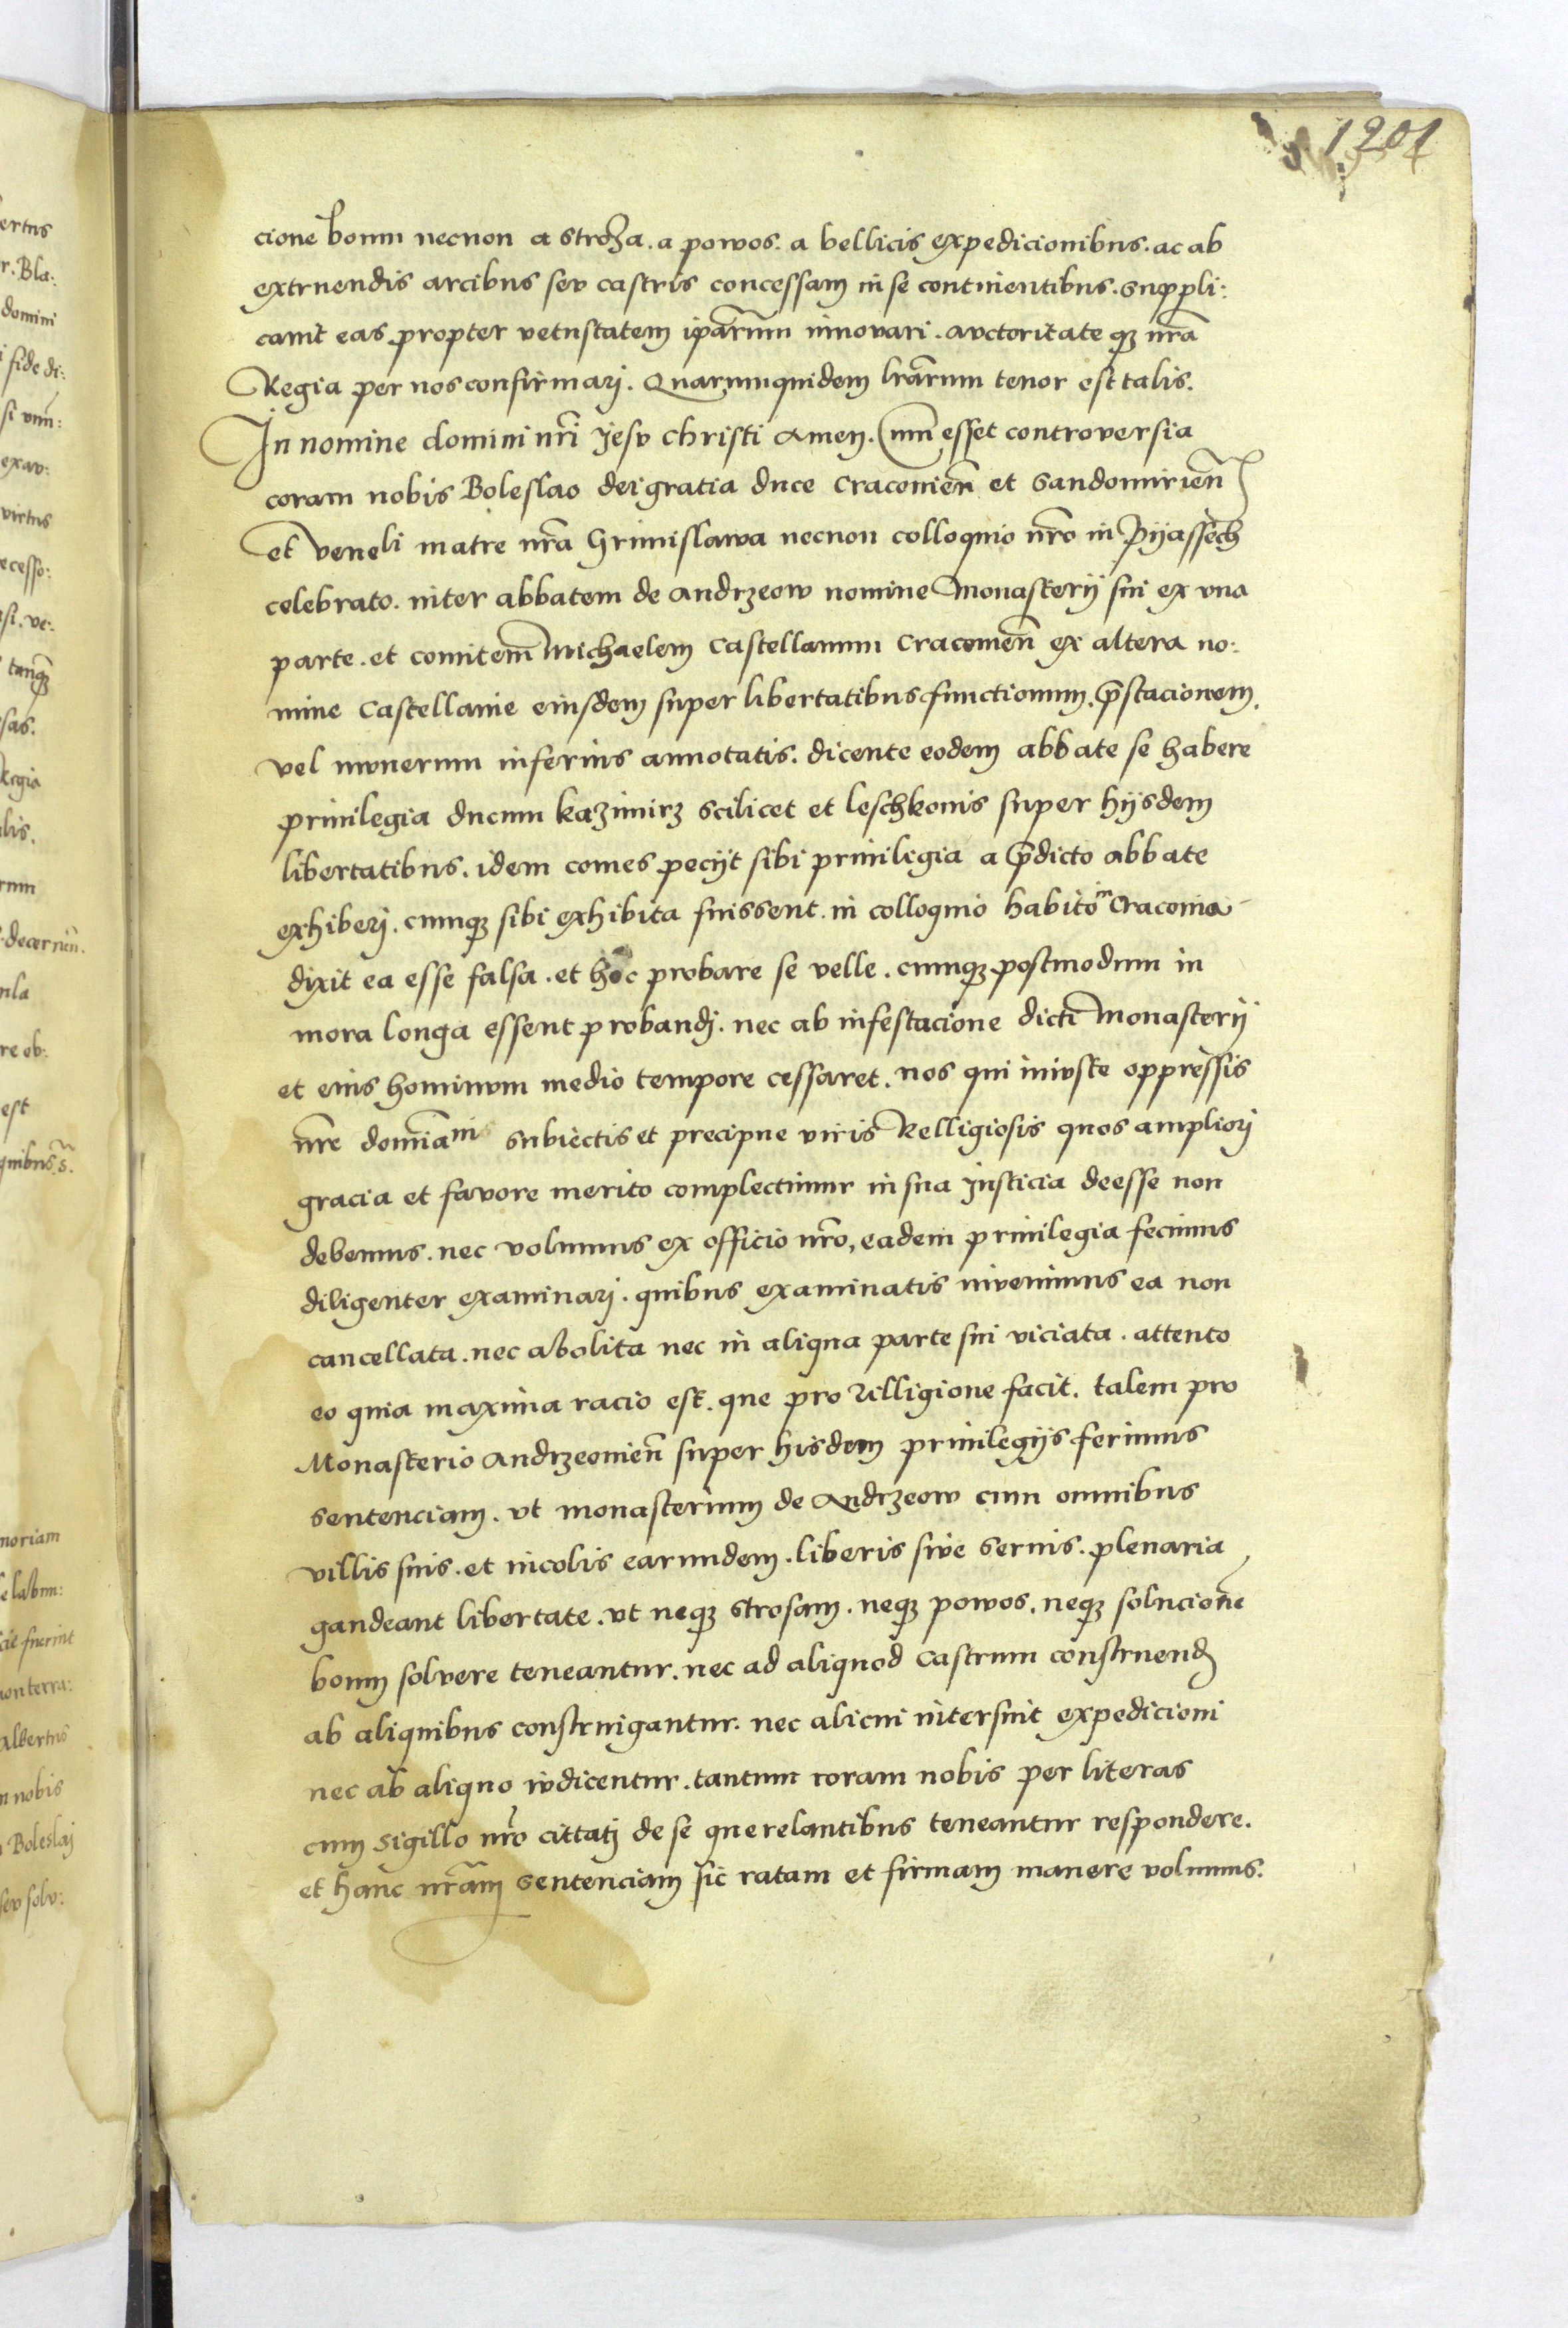 1201
cione boum necnon a stroza. a powos. a bellicis expedicionibus. ac ab
extruendis arcibus seu castris concessam in se continentibus. suppli:
cauit eas propter vetustatem ipārum innouari. auctoritate qȝ nrā
Regia per nos confirmarj. Quarumquidem lrārum tenor est talis.
In nomine domini nrī Jesv Christi Amen. Cum esset controversia
coram nobis Boleslao dei gratia duce Cracouien̄ et Sandomirien̄
et venebli matre nrā Grimislawa necnon colloquio nrō in Pyassech
celebrato. inter abbatem de Andrzeow nomine Monasterij sui ex vna
parte. et comitem Michaelem Castellanum Cracouien̄ ex altera no:
mine Castellanie eiusdem super libertatibus functionum. p̄stacionem.
vel munerum inferius annotatis. dicente eodem abbate se habere
priuilegia ducum kazimirz scilicet et leschkonis super hijsdem
libertatibus. idem comes pecijt sibi priuiligia a p̄dicto abbate
exhiberj. cumqȝ sibi exhibita fuissent. in colloquio habito in Cracouia
dixit ea esse falsa. et hoc probare se velle. cumqȝ postmodum in
mora longa essent probandj. nec ab infestacione dicti Monasterij
et eius hominum medio tempore cessaret. nos qui iniuste oppressis
nrē domiāni subiectis et precipue viris Relligiosis quos ampliorj
gracia et favore merito complectimur in sua Justicia deesse non
debemus. nec volumus ex officio nrō, eadem priuilegia fecimus
diligenter examinarj. quibus examinatis invenimus ea non
cancellata. nec abolita nec in aliqua parte sui viciata. attento
eo quia maxima racio est. que pro relligione facit. talem pro
Monasterio Andrzeouien̄ super hisdem priuilegijs ferimus
sentenciam. vt monasterium de Andrzeow cum omnibus
villis suis. et incolis earundem. liberis siue seruis. plenaria
gaudeant libertate. vt neqȝ strosam. neqȝ powos. neqȝ soluciōne
boum solvere teneantur. nec ad aliquod Castrum construend
ab aliquibus constringantur. nec alicui intersint expedicioni
nec ab aliquo iudicentur. tantum coram nobis per literas
cum sigillo nrō cittatj de se querelantibus teneantur respondere.
et hanc nrām sentenciam sic ratam et firmam manere volumus.